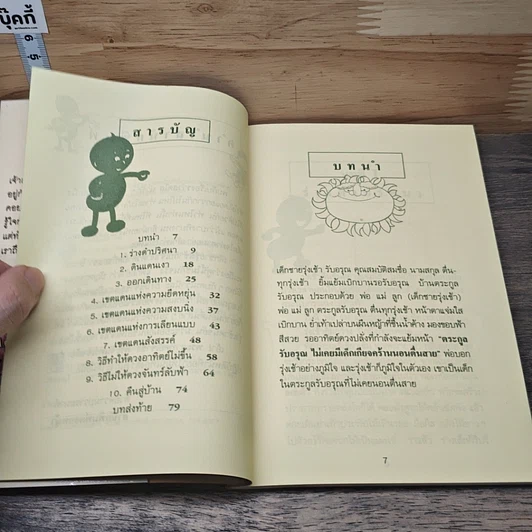 บุ๊คกี้
6
5
สารบัญ
บทนำ 7
1. ร่างดำปริศนา 9
2. ดินแดนเงา 18
3. ออกเดินทาง 25
4. เขตแดนแห่งความยืดหยุ่น 32
5. เขตแดนแห่งความสงบนิ่ง 37
6. เขตแดนแห่งการเลียนแบบ 43
7. เขตแดนสังสรรค์ 48
8. วิธีทำให้ดวงอาทิตย์ไม่ขึ้น 58
9. วิธีไม่ให้ดวงจันทร์ลับฟ้า 64
10. คืนสู่บ้าน 74
บทส่งท้าย 79
บทนำ
เด็กชายรุ่งเช้า รับอรุณ คุณสมบัติสมชื่อ นามสกุล ตื่น-
ทุกรุ่งเช้า ยิ้มแย้มเบิกบานรอรับอรุณ บ้านตระกูล
รับอรุณ ประกอบด้วย พ่อ แม่ ลูก (เด็กชายรุ่งเช้า)
พ่อ แม่ ลูก ตระกูลรับอรุณ ตื่นทุกรุ่งเช้า หน้าตาแจ่มใส
เบิกบาน ย่ำเท้าเปล่าบนผืนหญ้าที่ชื้นน้ำค้าง มองขอบฟ้า
สีสวย รออาทิตย์ดวงเปล่งที่กำลังจะแย้มหน้า "ตระกูล
รับอรุณ ไม่เคยมีเด็กเกียจคร้านนอนตื่นสาย" พ่อบอก
รุ่งเช้าอย่างภูมิใจ และรุ่งเช้าก็ภูมิใจในตัวเอง เขาเป็นเด็ก
ในตระกูลรับอรุณที่ไม่เคยนอนตื่นสาย
7